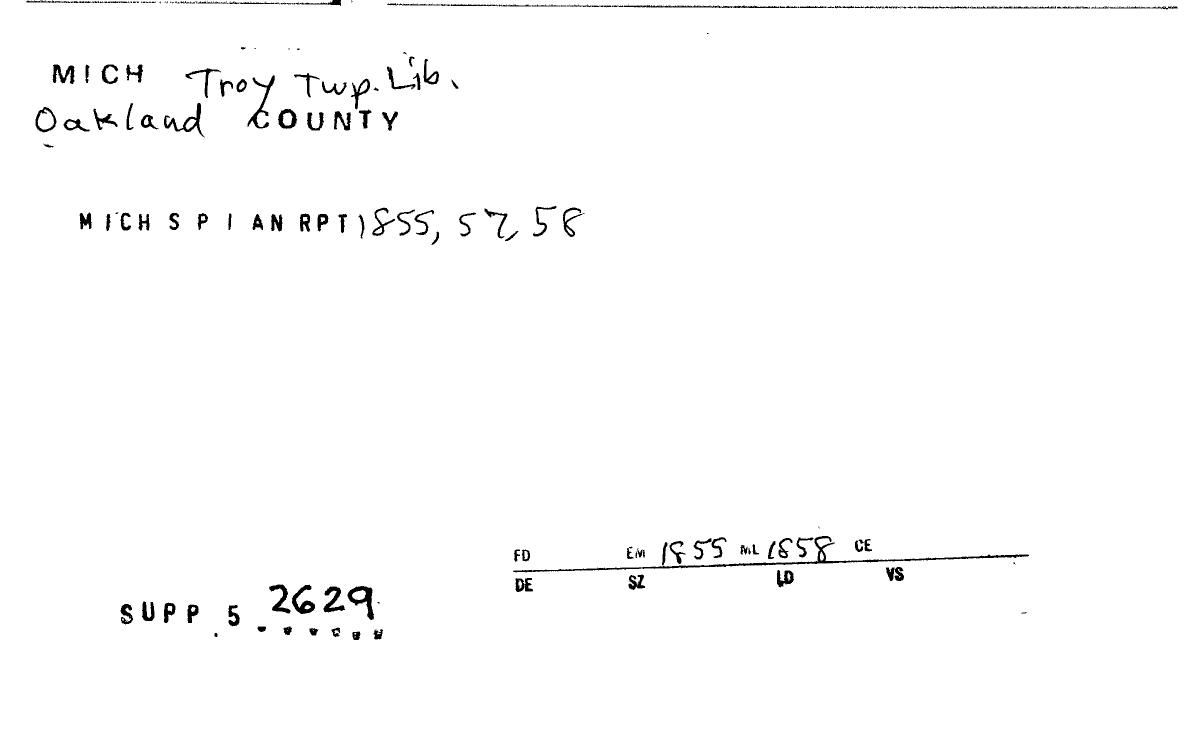 MICH Troy Twp. Lib.
Oakland COUNTY
MICH S P I AN RPT 1855, 57, 58
FD EM 1855 ML 1858 CE
DE SZ LD VS
SUPP. 5 2629